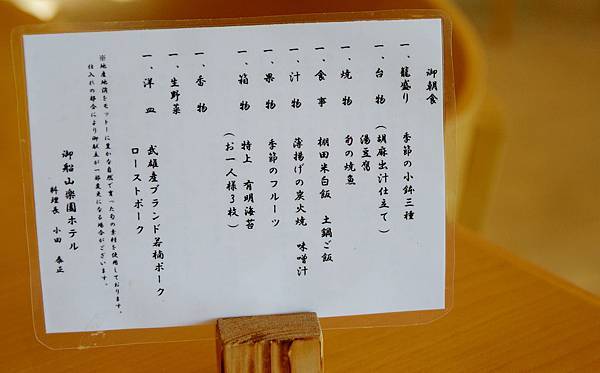 御朝食
一、籠盛り　季節の小鉢三種
一、台　物　(胡麻出汁仕立て)
湯豆腐
一、焼　物　旬の焼魚
一、食　事　棚田米白飯　土鍋ご飯
一、汁　物　薄揚げの炭火焼　味噌汁
一、果　物　季節のフルーツ
一、箱　物　特上　有明海苔
(お一人様3枚)
一、香　物
一、生野菜
一、洋　皿　武雄産ブランド若楠ポーク
ローストポーク
※地産地消をモットーに豊かな自然で育った旬の素材を使用しております。
仕入れの都合により御献立が一部変更になる場合がございます。
御船山楽園ホテル
料理長　小田　泰正